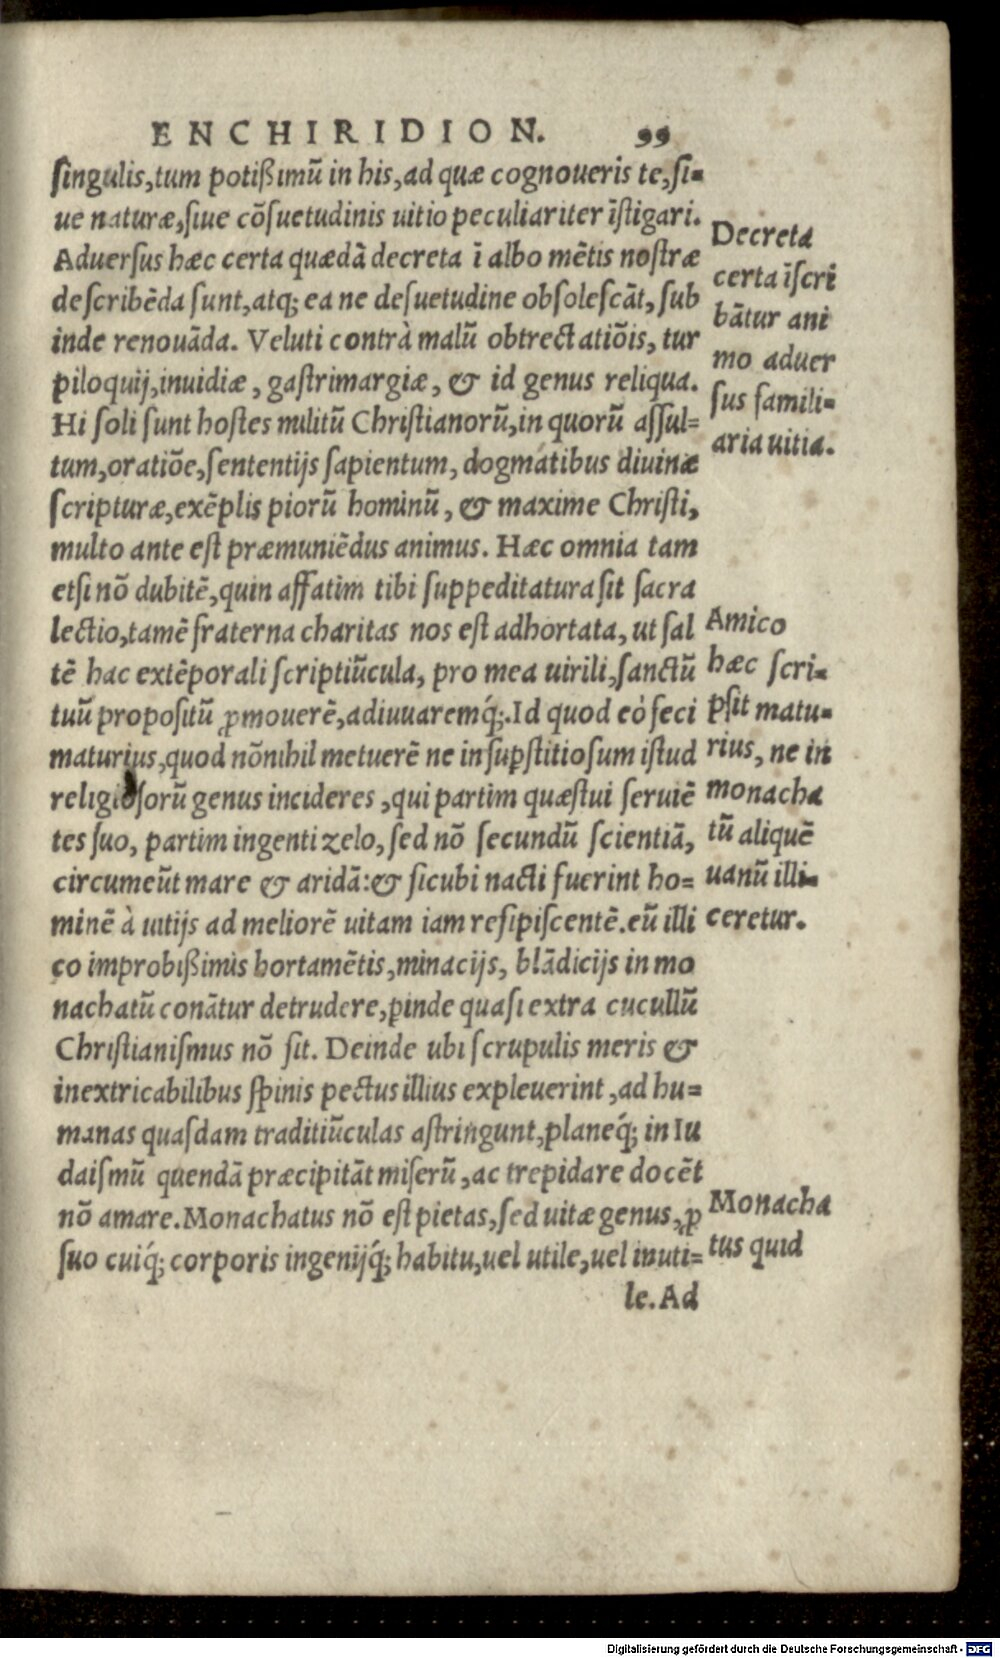 ENCHIRIDION. 99
singulis,tum potißimū in his,ad quæ cognoueris te,si=
ue naturæ,siue cōsuetudinis uitio peculiariter īstigari.
Aduersus hæc certa quædā decreta ī albo mētis nostræ
describēda sunt,atq; ea ne desuetudine obsolescāt, sub
inde renouāda. Veluti contrà malū obtrectatiōis, tur
piloquij,inuidiæ, gastrimargiæ, & id genus reliqua.
Hi soli sunt hostes militū Christianorū,in quorū assul=
tum,oratiōe,sententijs sapientum, dogmatibus diuinæ
scripturæ,exēplis piorū hominū, & maxime Christi,
multo ante est præmuniēdus animus. Hæc omnia tam
etsi nō dubitē,quin affatim tibi suppeditatura sit sacra
lectio,tamē fraterna charitas nos est adhortata, ut sal
tē hac extēporali scriptiūcula, pro mea uirili,sanctū
tuū propositū ꝓmouerē,adiuuaremq́;.Id quod eó feci
maturius,quod nōnihil metuerē ne in suꝑstitiosum istud
religiosorū genus incideres, qui partim quæstui seruiē
tes suo, partim ingenti zelo, sed nō secundū scientiā,
circumeūt mare & aridā:& sicubi nacti fuerint ho=
minē à uitijs ad meliorē uitam iam resipiscentē.eū illi
co improbißimis hortamētis,minacijs, blādicijs in mo
nachatū conātur detrudere,ꝑinde quasi extra cucullū
Christianismus nō sit. Deinde ubi scrupulis meris &
inextricabilibus spinis pectus illius expleuerint, ad hu=
manas quasdam traditiūculas astringunt,planeq́; in Iu
daismū quendā præcipitāt miserū, ac trepidare docēt
nō amare.Monachatus nō est pietas,sed uitæ genus,ꝓ
suo cuiq́; corporis ingenijq́; habitu,uel utile,uel inuti=
le. Ad
Decreta
certa īscri
bātur ani
mo aduer
sus famili=
aria uitia.
Amico
hæc scri=
psit matu=
rius, ne in
monacha
tū aliquē
uanū illi=
ceretur.
Monacha
tus quid
Digitalisierung gefördert durch die Deutsche Forschungsgemeinschaft - DFG